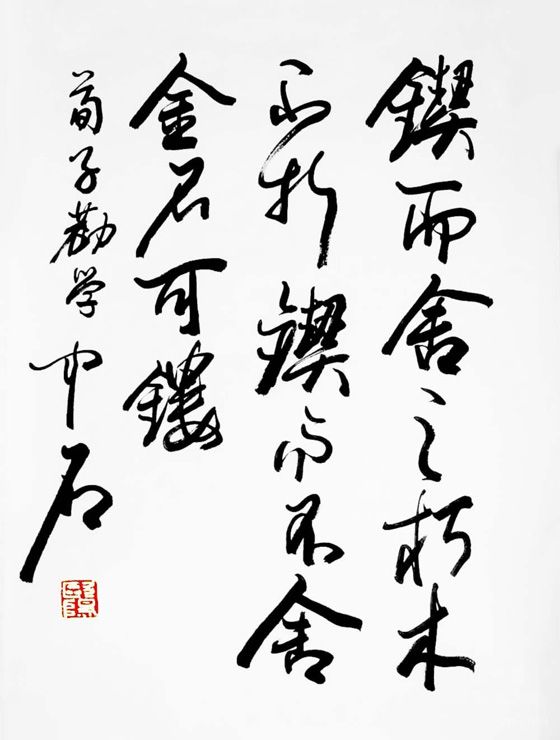 鍥而舍之朽木
不折鍥而不舍
金石可鏤
荀子勸学 中石